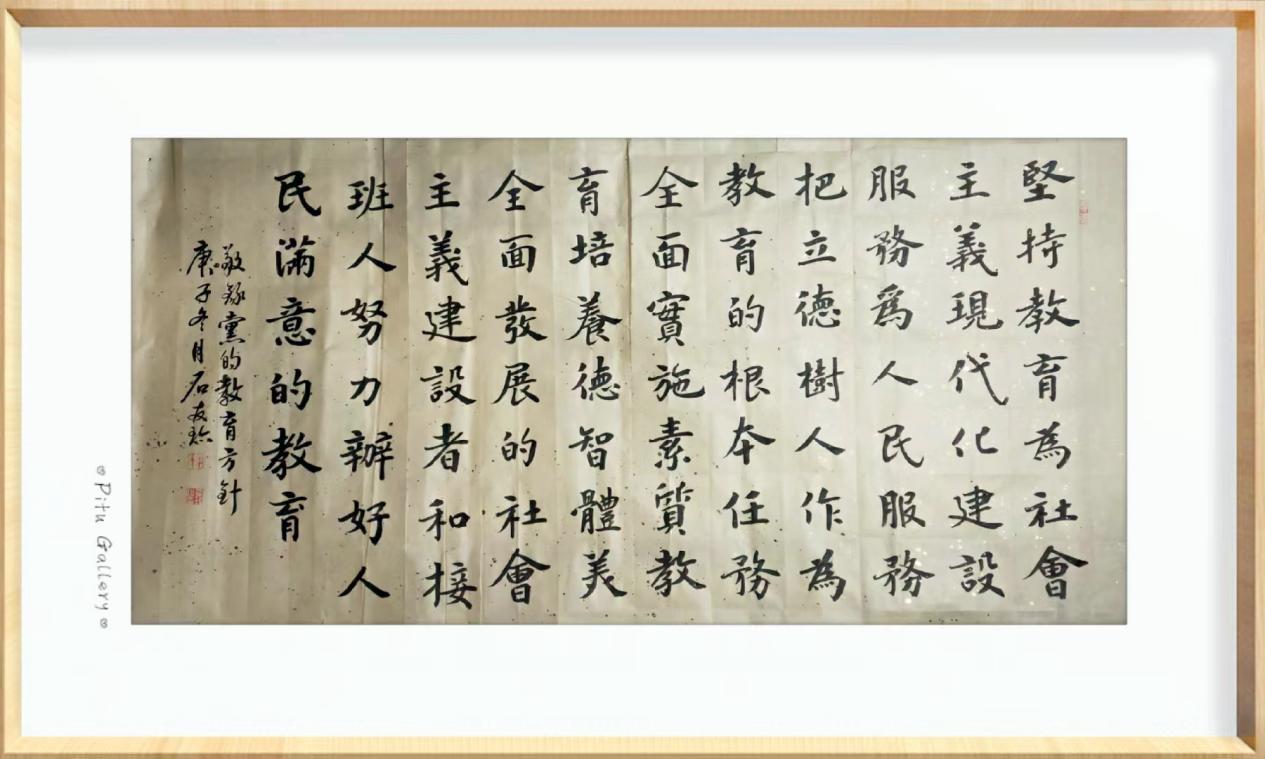 堅持教育為社會
主義現代化建設
服務爲人民服務
把立德樹人作為
教育的根本任務
全面實施素質教
育培養德智體美
全面發展的社會
主義建設者和接
班人努力辦好人
民滿意的教育
敬錄黨的教育方針
庚子冬月石友
Pitu Gallery